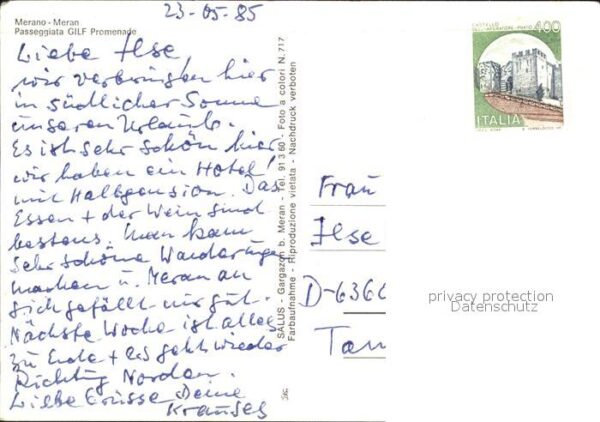 23-05-85
Merano - Meran
Passeggiata GILF Promenade
Liebe Ilse,
wir verbringen hier
in südlicher Sonne
unseren Urlaub.
Es ist sehr schön hier
wir haben ein Hotel
mit Halbpension. Das
Essen + der Wein sind
bestens. Man kann
sehr schöne Wanderungen
machen u. Meran an
sich gefällt mir gut.
Nächste Woche ist alles
zu Ende + es geht wieder
Richtung Norden.
Liebe Grüsse Deine
Krauses
SALUS - Gargazon b. Meran - Tel. 91 3 60 - Foto a colori N. 717
Farbaufnahme - Riproduzione vietata - Nachdruck verboten
400
ITALIA
Frau
Ilse
D-6366
Tau
privacy protection
Datenschutz